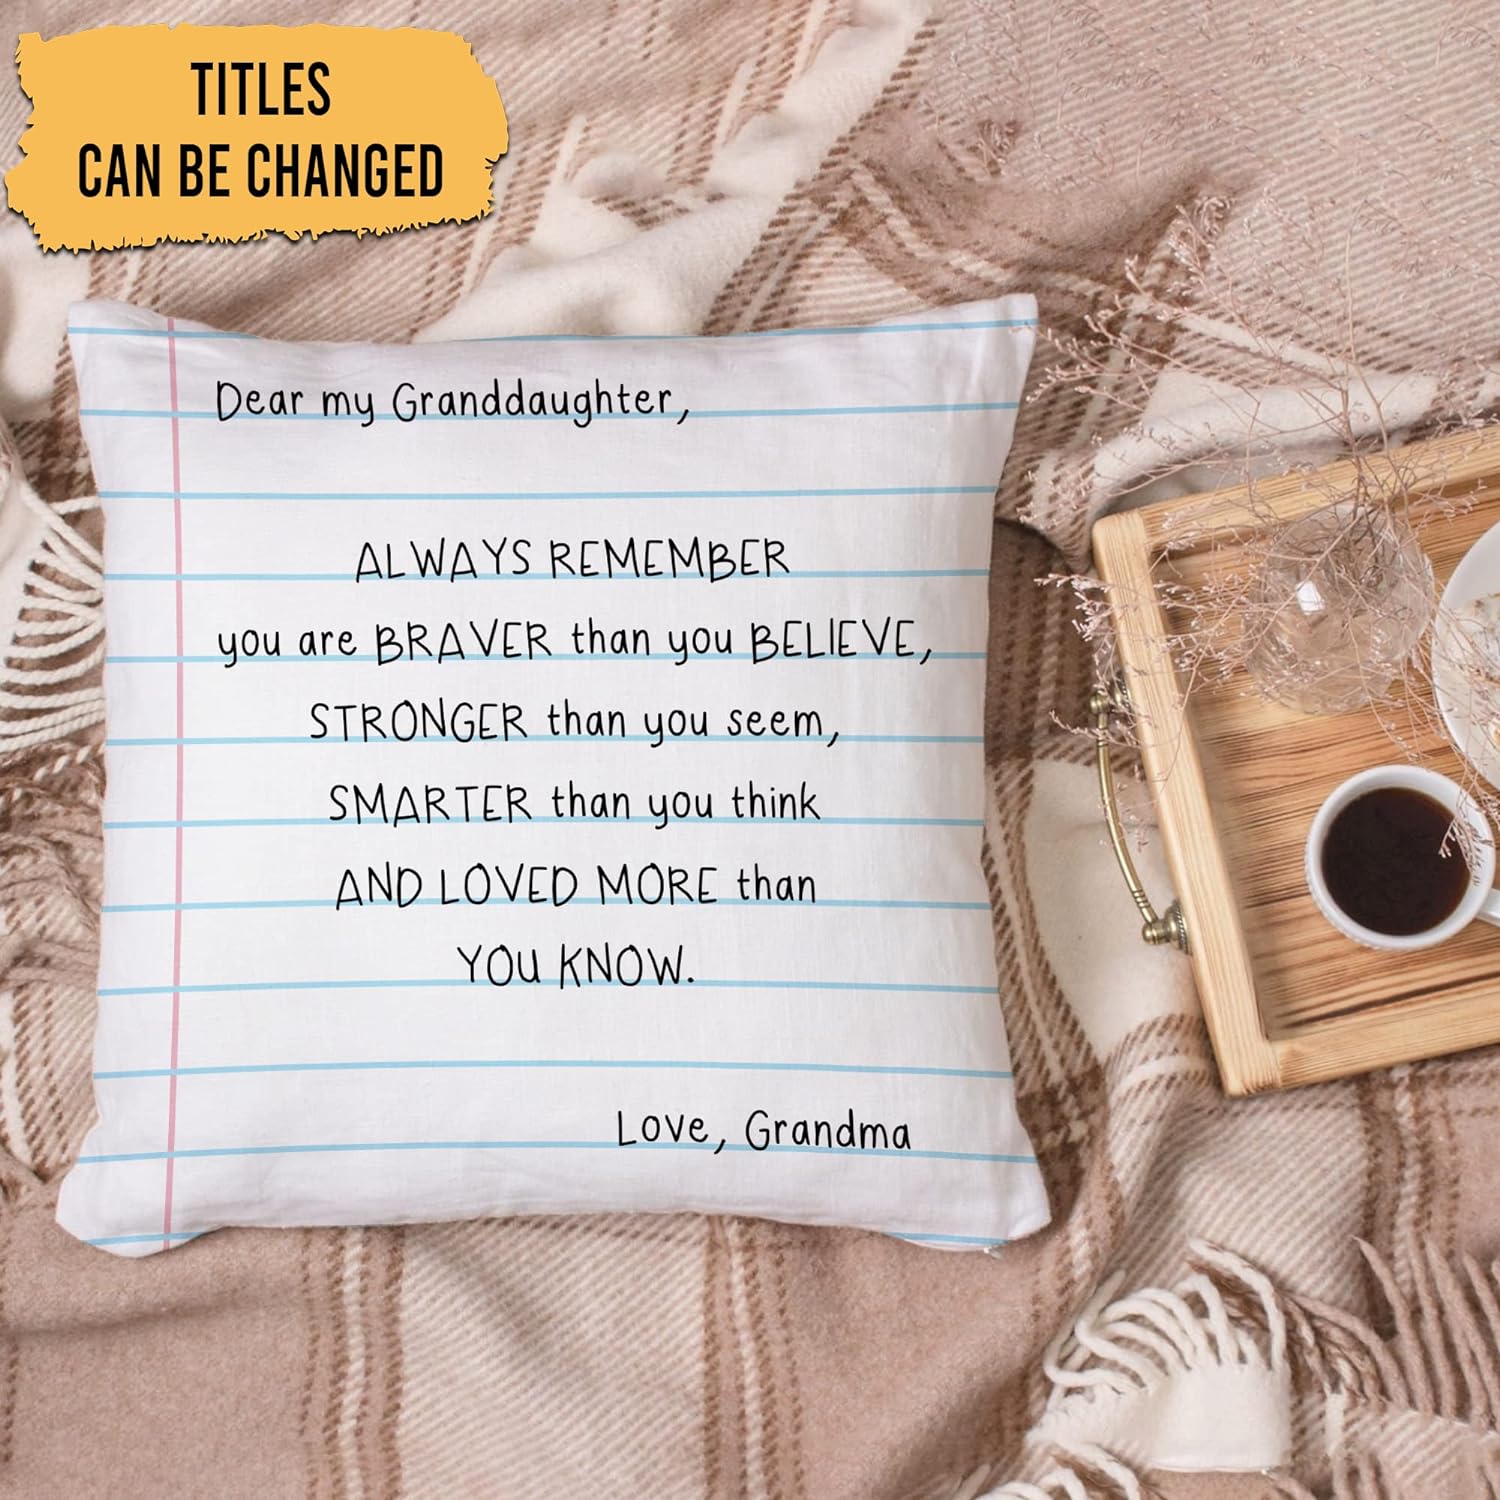 TITLES
CAN BE CHANGED
Dear my Granddaughter,
ALWAYS REMEMBER
you are BRAVER than you BELIEVE,
STRONGER than you seem,
SMARTER than you think
AND LOVED MORE than
YOU KNOW.
Love, Grandma